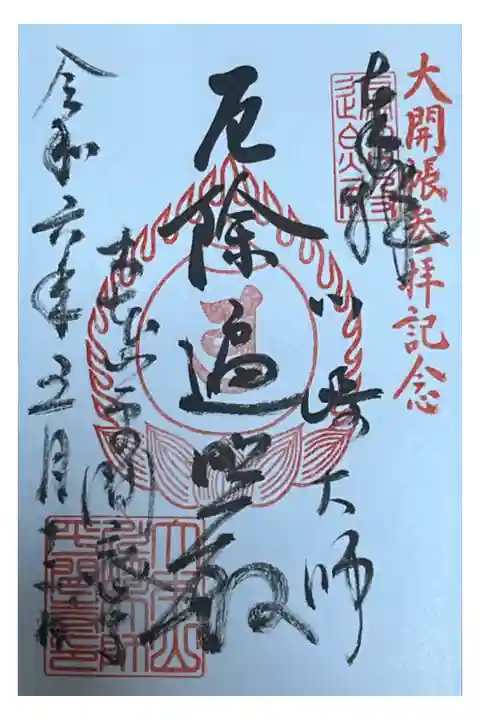 大開帳参拝記念
奉拝
川崎大師
厄除遍照殿
大本山平間寺
令和六年五月